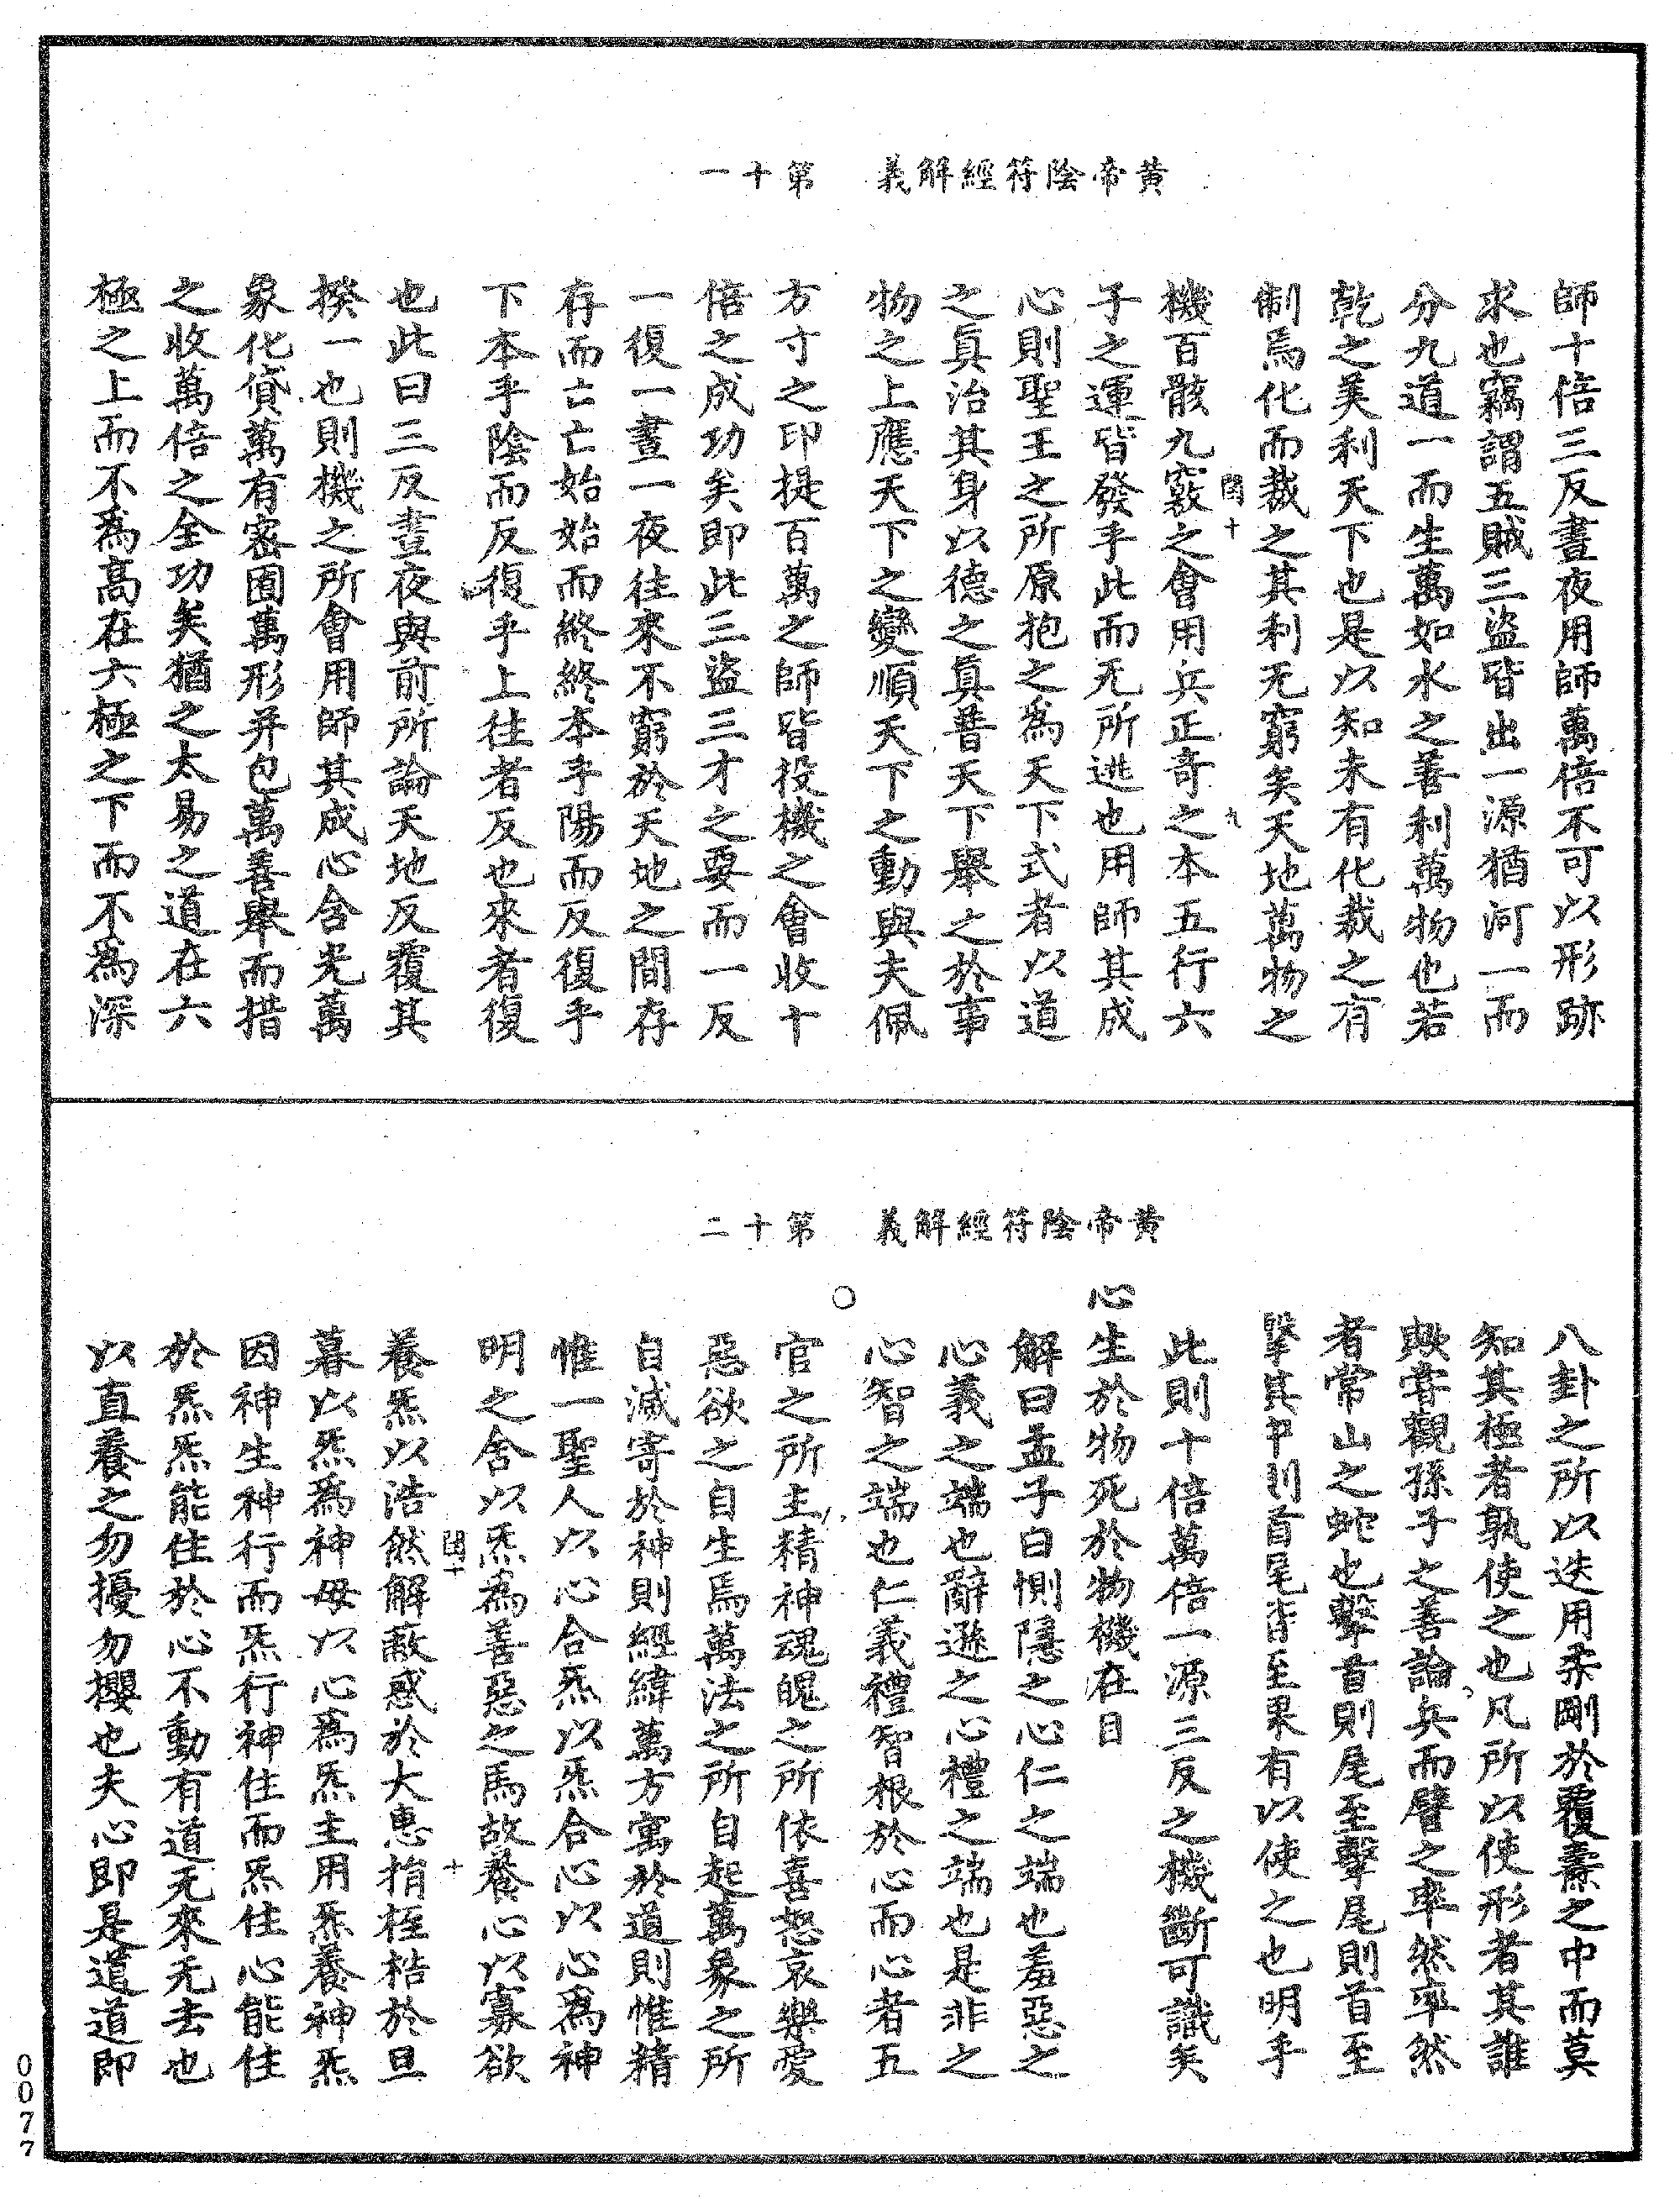 黃帝陰符經解義　第十一
師十倍三反晝夜用師萬倍不可以形跡
求也竊謂五賊三盜皆出一源猶河一而
分九道一而生萬如水之善利萬物也若
乾之美利天下也是以知未有化裁之有
制焉化而裁之其利无窮矣天地萬物之
閏十　九
機百骸九竅之會用兵正奇之本五行六
子之運皆發乎此而无所逃也用師其成
心則聖王之所原抱之為天下式者以道
之真治其身以德之真普天下舉之於事
物之上應天下之變順天下之動與夫佩
方寸之印提百萬之師皆投機之會收十
倍之成功矣即此三盜三才之要而一反
一復一晝一夜往來不窮於天地之間存
存而亡亡始始而終終本乎陽而反復乎
下本乎陰而反復乎上往者反也來者復
也此曰三反晝夜與前所論天地反覆其
揆一也則機之所會用師其成心含光萬
象化貸萬有密囿萬形并包萬善舉而措
之收萬倍之全功矣猶之太易之道在六
極之上而不為高在六極之下而不為深
黃帝陰符經解義　第十二
八卦之所以迭用柔剛於覆燾之中而莫
知其極者孰使之也凡所以使形者其誰
歟嘗觀孫子之善論兵而譬之率然率然
者常山之蛇也擊首則尾至擊尾則首至
擊其中則首尾皆至果有以使之也明乎
此則十倍萬倍一源三反之機斷可識矣
心生於物死於物機在目
解曰孟子曰惻隱之心仁之端也羞惡之
心義之端也辭遜之心禮之端也是非之
心智之端也仁義禮智根於心而心者五
○
官之所主精神魂魄之所依喜怒哀樂愛
惡欲之自生焉萬法之所自起萬象之所
自滅寄於神則經緯萬方寓於道則惟精
惟一聖人以心合炁以炁合心以心為神
明之舍以炁為善惡之馬故養心以寡欲
閏十　十
養炁以浩然解蔽惑於大惠捐桎梏於旦
暮以炁為神母以心為炁主用炁養神炁
因神生神行而炁行神住而炁住心能住
於炁炁能住於心不動有道无來无去也
以直養之勿擾勿攖也夫心即是道道即
0077